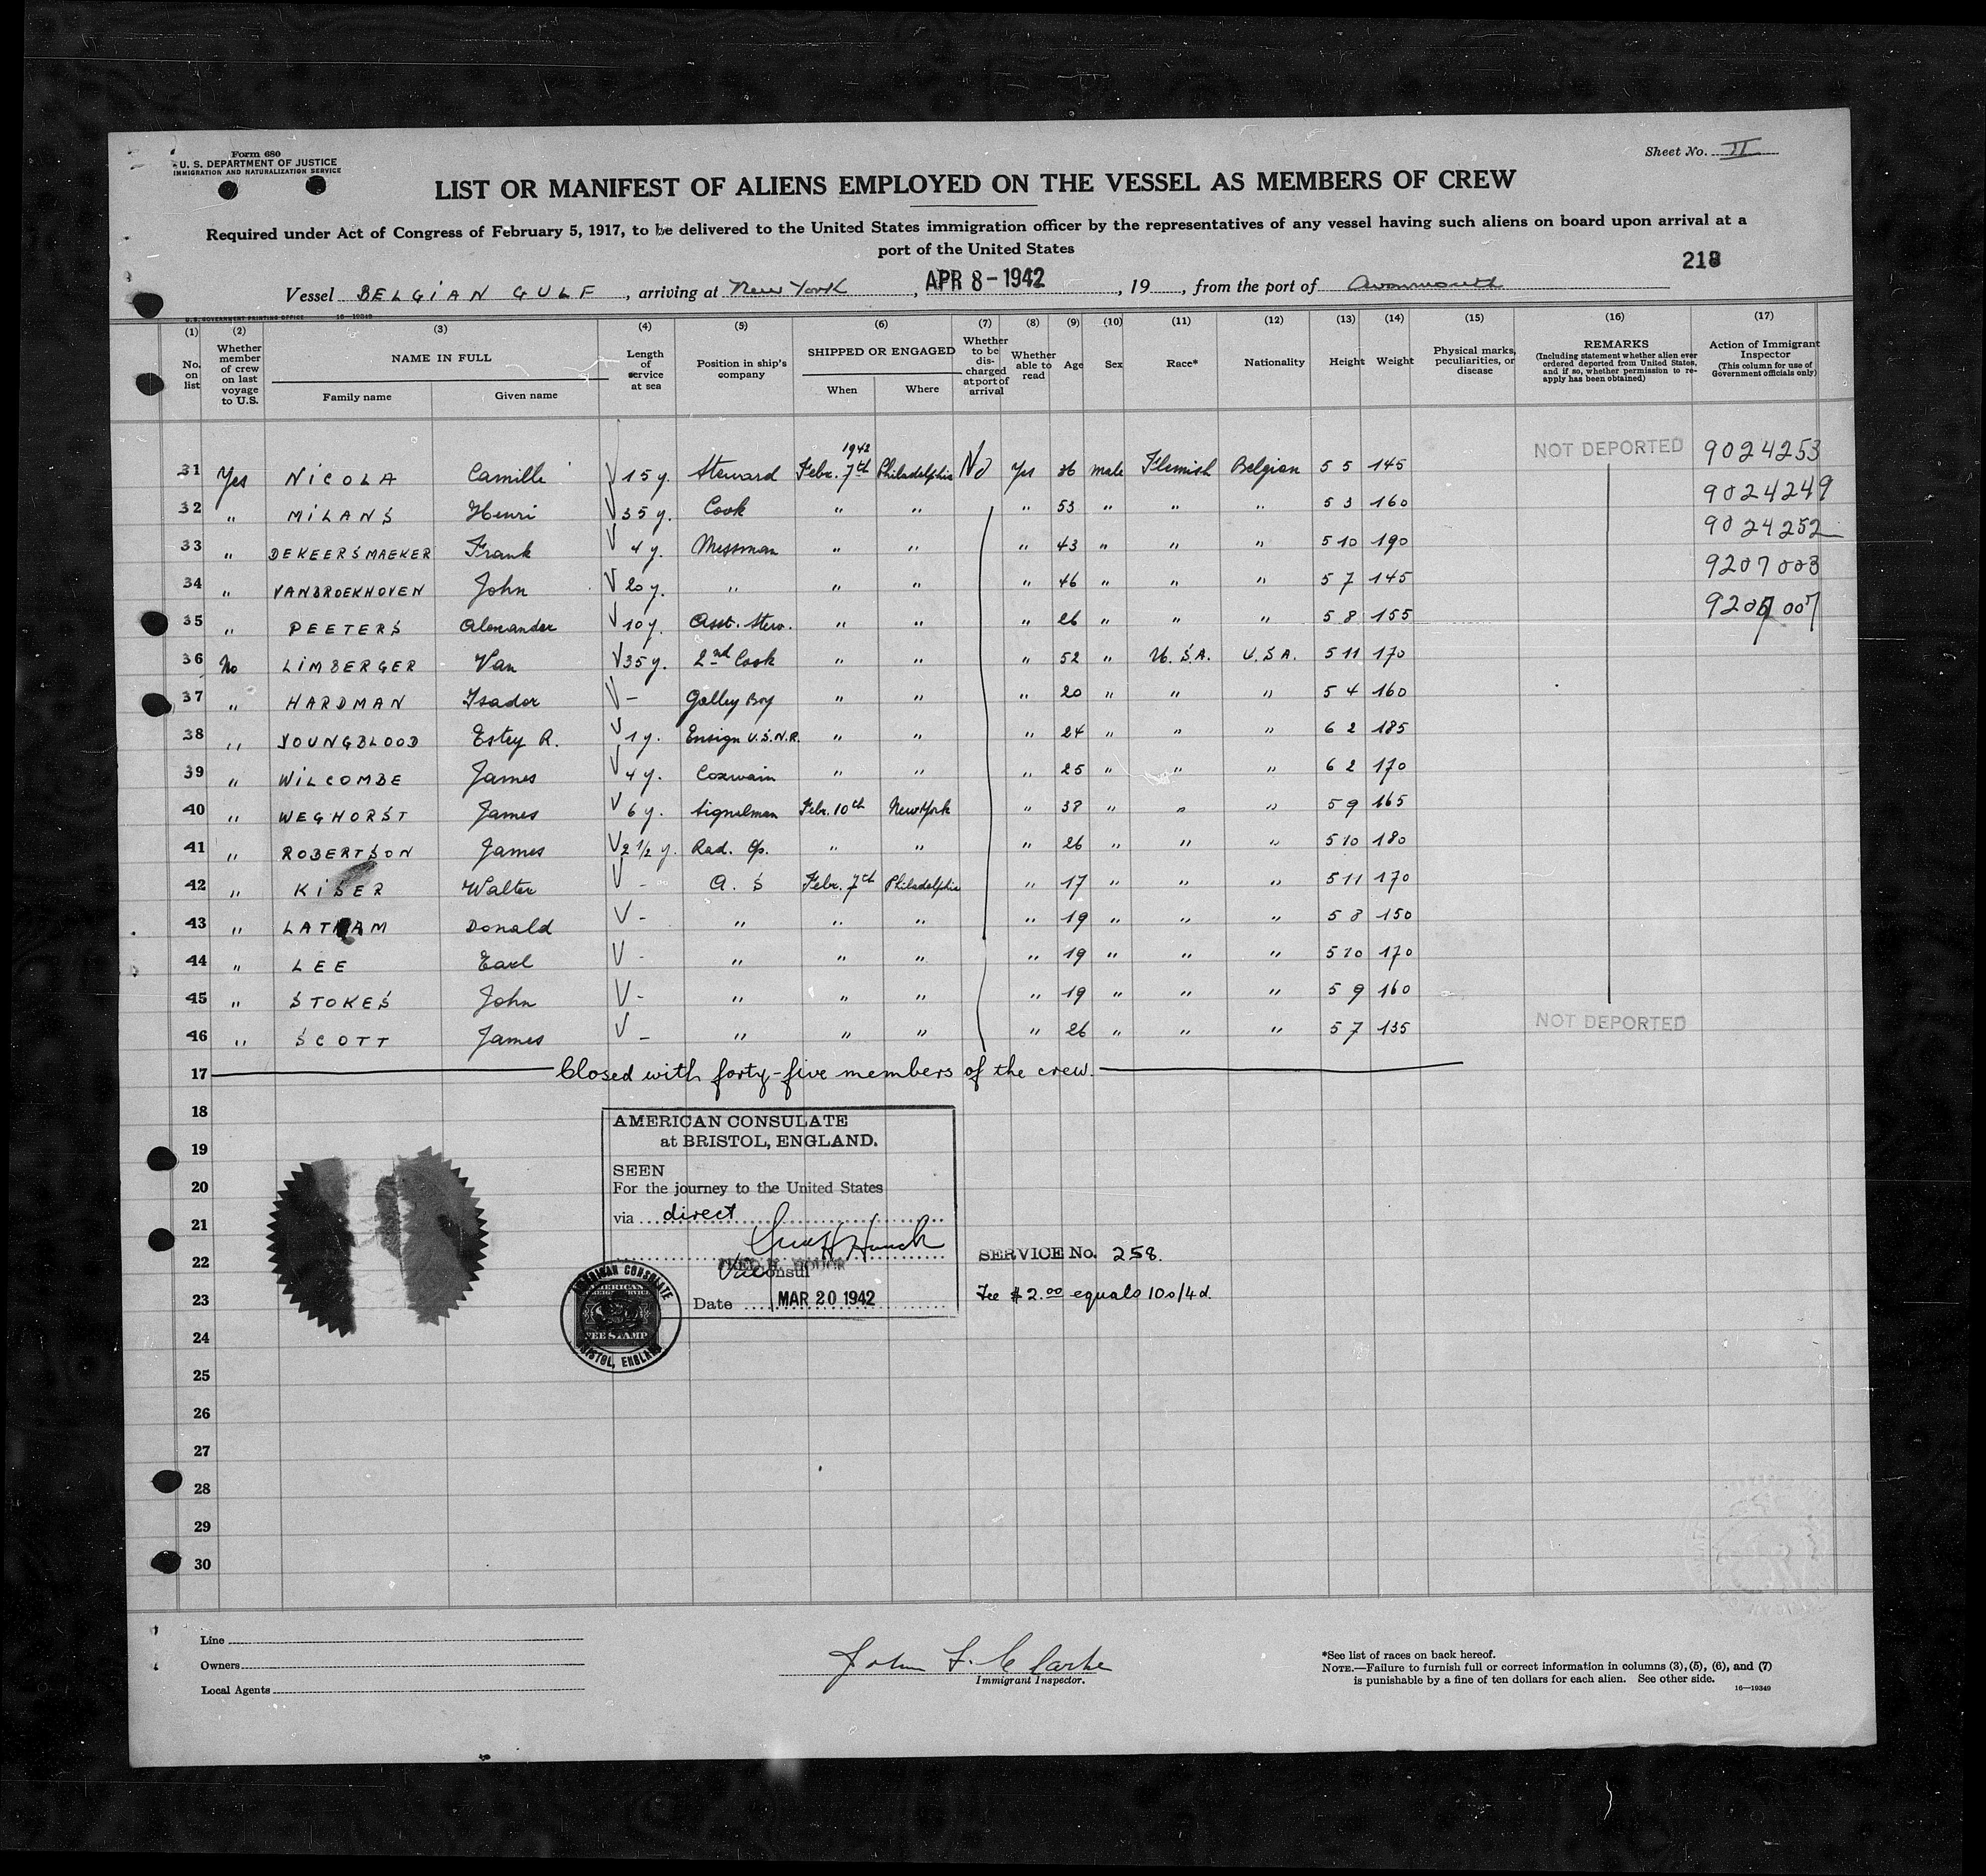 Form 680
U. S. DEPARTMENT OF JUSTICE
IMMIGRATION AND NATURALIZATION SERVICE
Sheet No. II
LIST OR MANIFEST OF ALIENS EMPLOYED ON THE VESSEL AS MEMBERS OF CREW
Required under Act of Congress of February 5, 1917, to be delivered to the United States immigration officer by the representatives of any vessel having such aliens on board upon arrival at a
port of the United States
218
Vessel BELGIAN GULF, arriving at New York, APR 8-1942, 19, from the port of Avonmouth
U. S. GOVERNMENT PRINTING OFFICE 16—19349
(1) (2) (3) (4) (5) (6) (7) (8) (9) (10) (11) (12) (13) (14) (15) (16) (17)
No. on list
Whether member of crew on last voyage to U.S.
NAME IN FULL
Family name
Given name
Length of service at sea
Position in ship's company
SHIPPED OR ENGAGED
When
Where
Whether to be discharged at port of arrival
Whether able to read
Age
Sex
Race*
Nationality
Height
Weight
Physical marks, peculiarities, or disease
REMARKS
(Including statement whether alien ever ordered deported from United States, and if so, whether permission to reapply has been obtained)
Action of Immigrant Inspector
(This column for use of Government officials only)
31 Yes NICOLA Camille V 15 y. Steward 1942 Febr. 7th Philadelphia No Yes 36 male Flemish Belgian 5 5 145 NOT DEPORTED 9024253
32 " MILANS Henri V 35 y. Cook " " " 53 " " " 5 3 160 9024249
33 " DEKEERSMAEKER Frank V 4 y. Messman " " " 43 " " " 5 10 190 9024252
34 " VANBROEKHOVEN John V 20 y. " " " " 46 " " " 5 7 145 9207003
35 " PEETERS Alexander V 10 y. Asst. Stew. " " " 26 " " " 5 8 155 9207007
36 No LIMBERGER Van V 35 y. 2nd Cook " " " 52 " U.S.A. U.S.A. 5 11 170
37 " HARDMAN Isador V - Galley Boy " " " 20 " " " 5 4 160
38 " YOUNGBLOOD Estey R. V 1 y. Ensign U.S.N.R. " " " 24 " " " 6 2 185
39 " WILCOMBE James V 4 y. Coxwain " " " 25 " " " 6 2 170
40 " WEGHORST James V 6 y. Signelman Febr. 10th New York " 38 " " " 5 9 165
41 " ROBERTSON James V 2 1/2 y. Rad. Op. " " " 26 " " " 5 10 180
42 " KISER Walter V - A. S Febr. 7th Philadelphia " 17 " " " 5 11 170
43 " LATHAM Donald V - " " " " 19 " " " 5 8 150
44 " LEE Earl V - " " " " 19 " " " 5 10 170
45 " STOKES John V - " " " " 19 " " " 5 9 160
46 " SCOTT James V - " " " " 26 " " " 5 7 135 NOT DEPORTED
17 Closed with forty-five members of the crew.
18
AMERICAN CONSULATE
19
at BRISTOL, ENGLAND.
SEEN
20
For the journey to the United States
21
via direct
22
SERVICE No. 258.
Vice Consul
23
Date MAR 20 1942
Fee $2.00 equals 10s/4d.
AMERICAN CONSULATE
AMERICAN
FEE STAMP
BRISTOL, ENGLAND
24
25
26
27
28
29
30
Line
Owners
Local Agents
John F. Clarke
Immigrant Inspector.
*See list of races on back hereof.
NOTE.—Failure to furnish full or correct information in columns (3), (5), (6), and (7)
is punishable by a fine of ten dollars for each alien. See other side.
16—19349